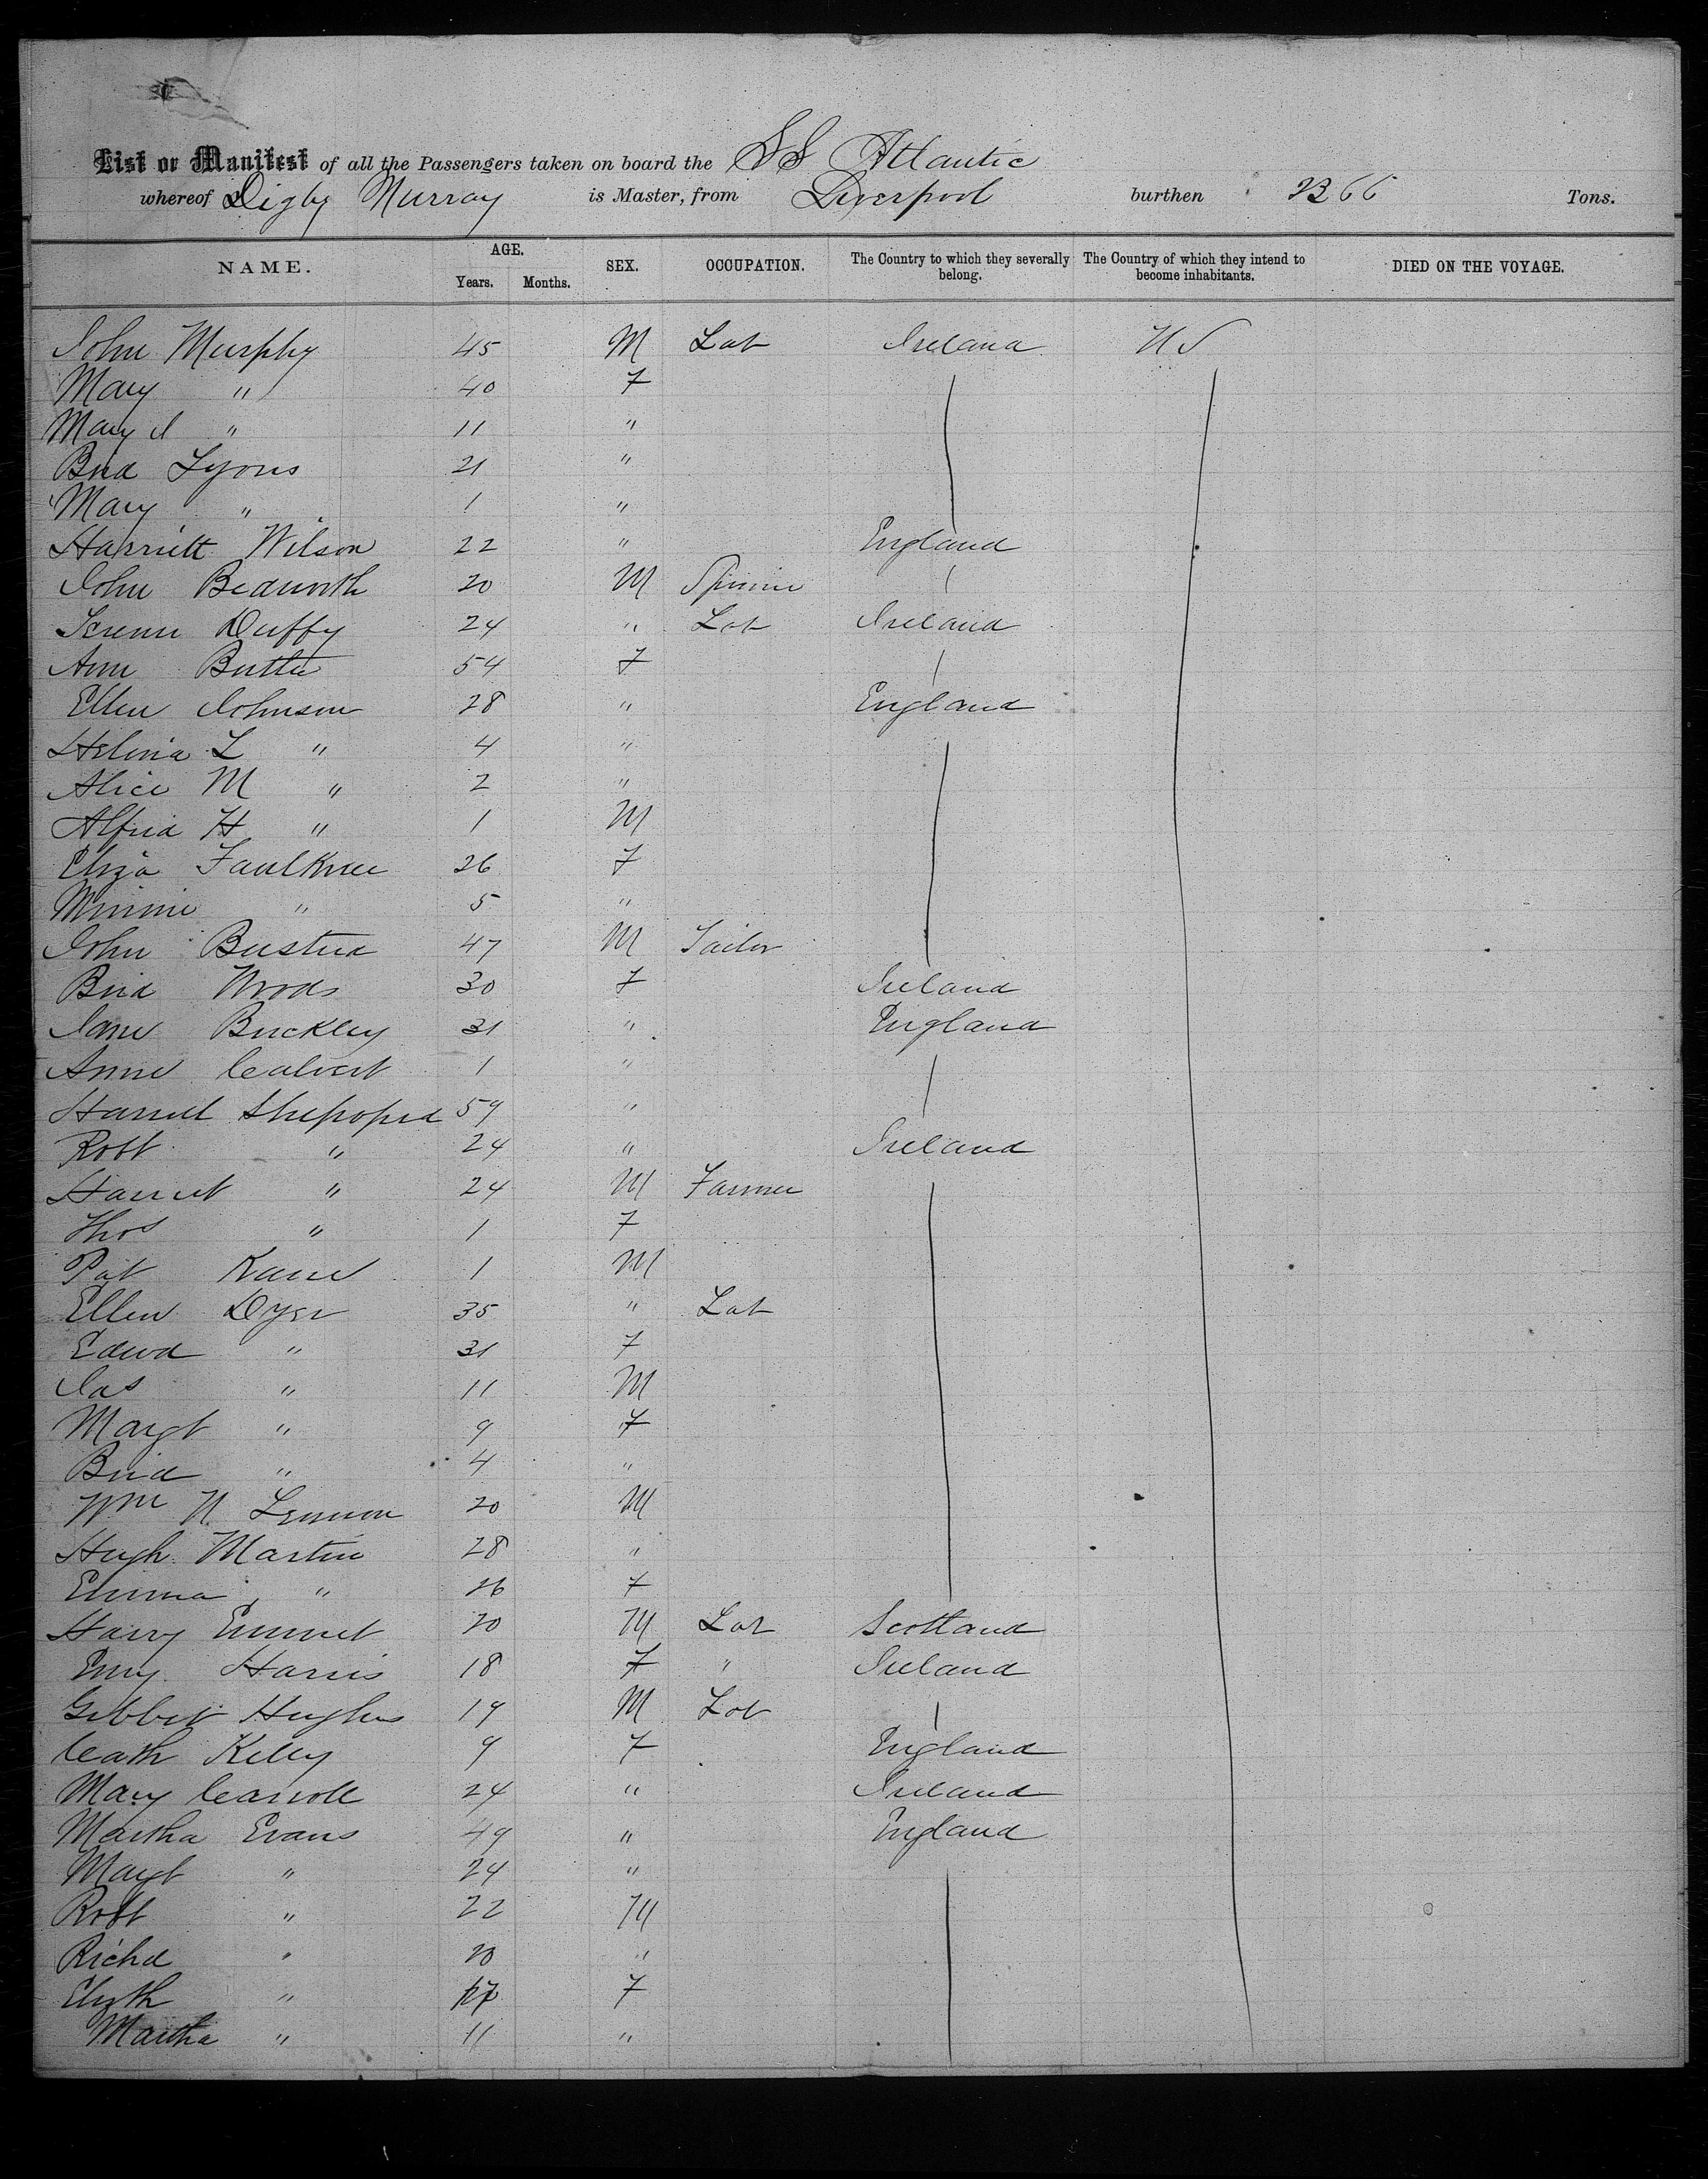 List or Manifest of all the Passengers taken on board the SS Atlantic
whereof Digby Murray is Master, from Liverpool burthen 2366 Tons.
NAME. AGE. Years. Months. SEX. OCCUPATION. The Country to which they severally belong. The Country of which they intend to become inhabitants. DIED ON THE VOYAGE.
John Murphy 45 M Lab Ireland US
Mary " 40 F
Mary J " 11 "
Brid Lyons 21 "
Mary " 1 "
Harriett Wilson 22 " England
John Bedworth 20 M Spinner
Duffy 24 " Lab Ireland
Ann Butler 54 F
Ellen Johnson 28 " England
Helena L " 4 "
Alice M " 2 "
Alfred H " 1 M
Eliza Faulkner 26 F
Minnie " 5 "
John 47 M Tailor
Brid Woods 30 F Ireland
Jane Buckley 31 " England
Anne Calvert 1 "
Harriet Shepperd 59 "
Robt " 24 " Ireland
Harriet " 24 M Farmer
Thos " 1 F
Pat Kane 1 M
Ellen Dyer 35 " Lab
Edwd " 31 F
Jas " 11 M
Margt " 9 F
Brid " 4 "
Wm N Lennon 20 M
Hugh Martin 28 "
Emma " 26 F
Harry Emmet 20 M Lab Scotland
Harris 18 F " Ireland
Gibbet Hughes 19 M Lab
Cath Kiley 9 F England
Mary Carroll 24 " Ireland
Martha Evans 49 " England
Margt " 24 "
Robt " 22 M
Richd " 20 "
Elizth " 17 F
Martha " 11 "